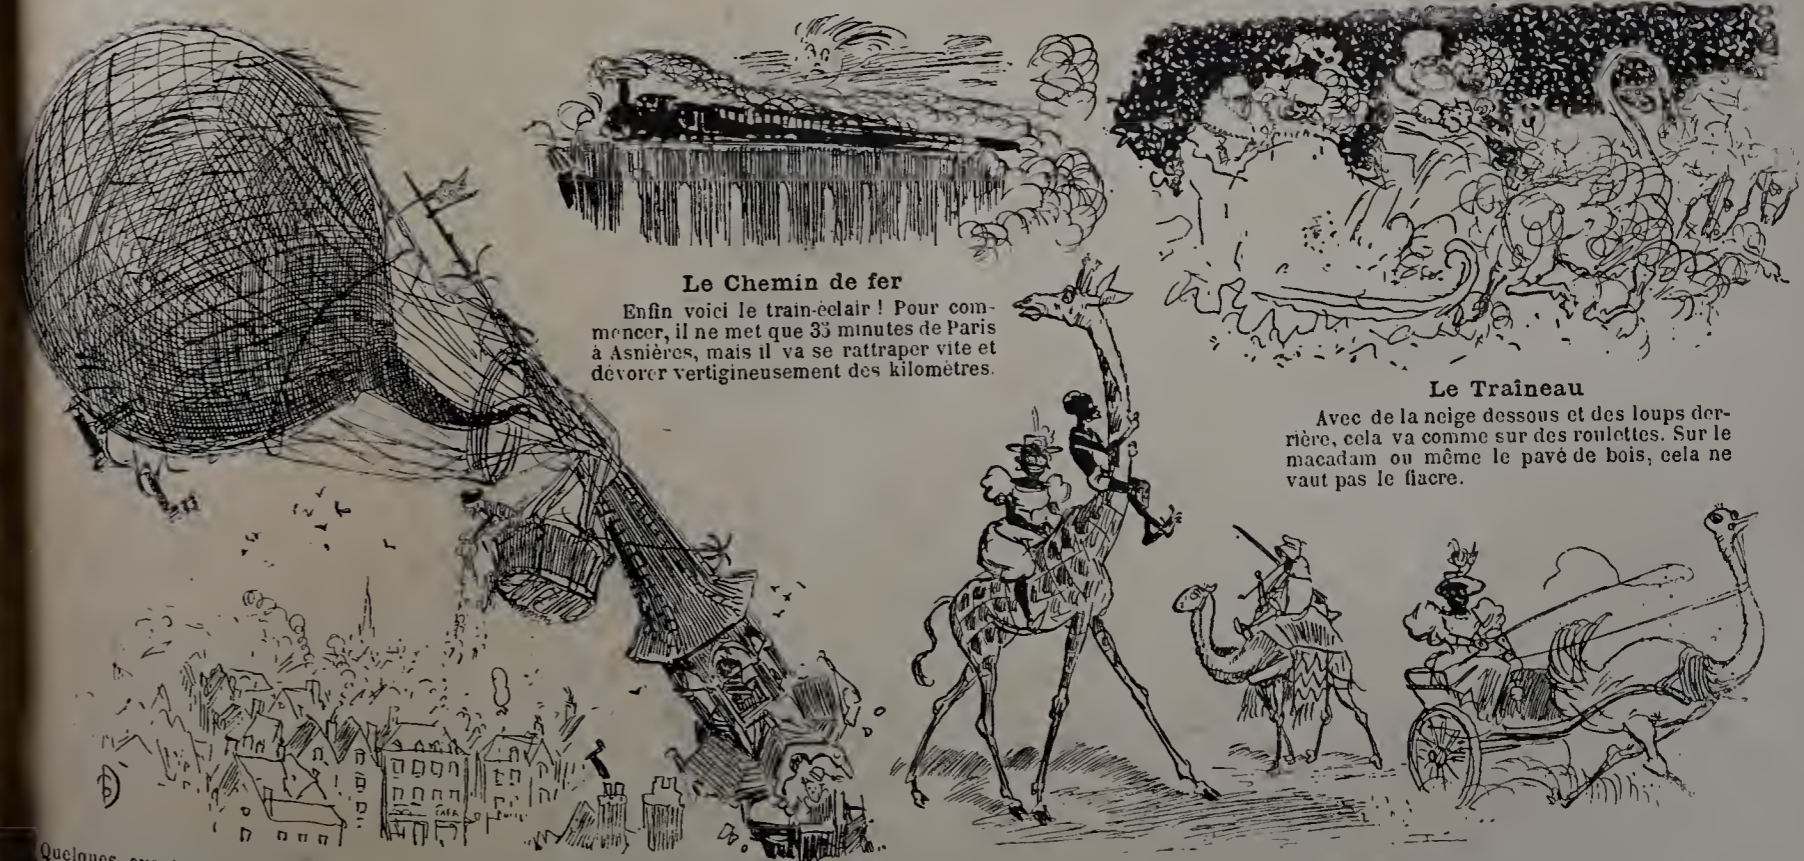 Le Chemin de fer
Enfin voici le train-éclair ! Pour com-
mencer, il ne met que 35 minutes de Paris
à Asnières, mais il va se rattraper vite et
dévorer vertigineusement des kilomètres.
Le Traîneau
Avec de la neige dessous et des loups der-
rière, cela va comme sur des roulettes. Sur le
macadam ou même le pavé de bois, cela ne
vaut pas le fiacre.
CAFÉ
Quelques